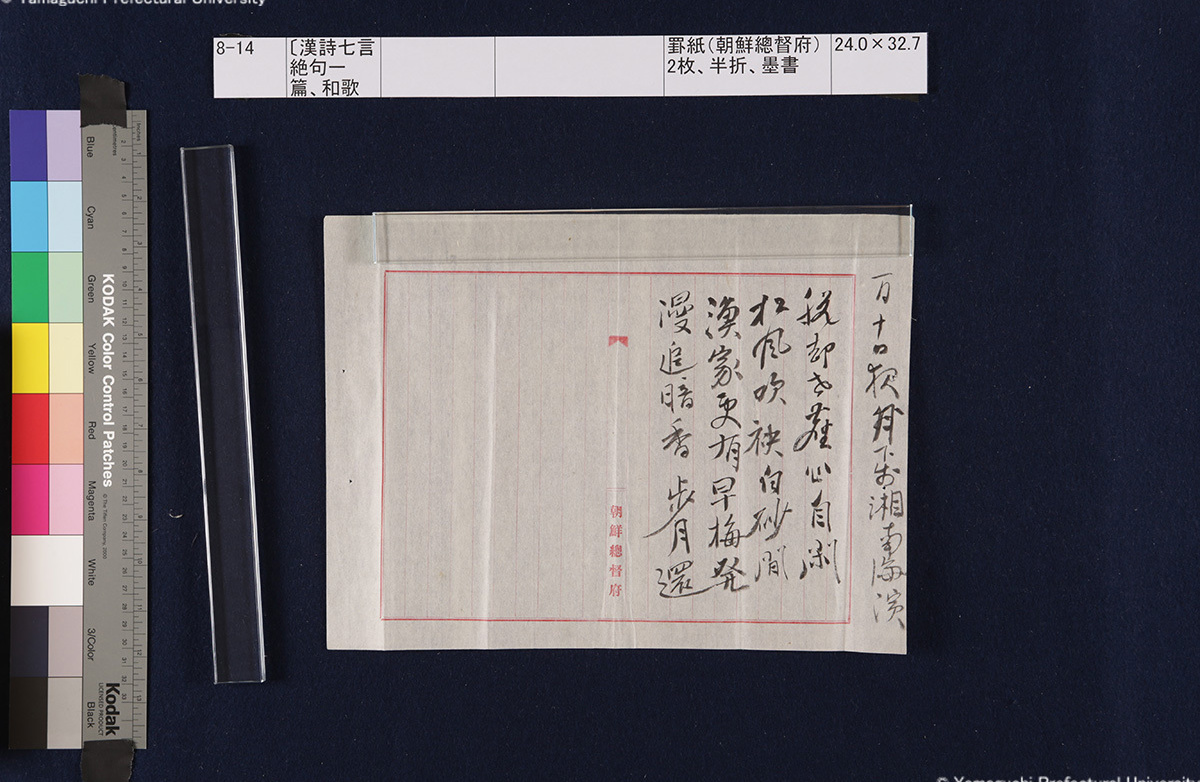 © Yamaguchi Prefectural University
8-14
〔漢詩七言
絶句一
篇、和歌
罫紙(朝鮮總督府)
2枚、半折、墨書
24.0×32.7
十日夜 下 湘南海濱
脱却 心自
松風吹袂白砂間
漁家更有早梅発
漫追暗香歩月還
朝鮮總督府
KODAK Color Control Patches
© The Tiffen Company, 2000
Blue
Cyan
Green
Yellow
Red
Magenta
White
3/Color
Black
Kodak
LICENSED PRODUCT
centimetres
inches
© Yamaguchi Prefectural University